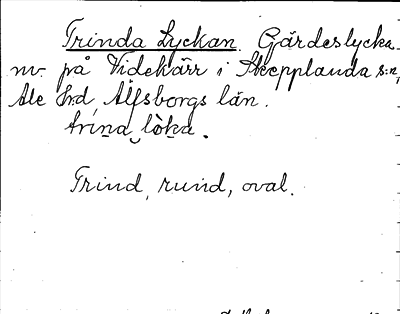 Trinda Lyckan. Gärdeslycka
nv. på Videkärr i Skepplanda s:n,
Ale hd, Älfsborgs län.
trina lòka.
Trind, rund, oval.